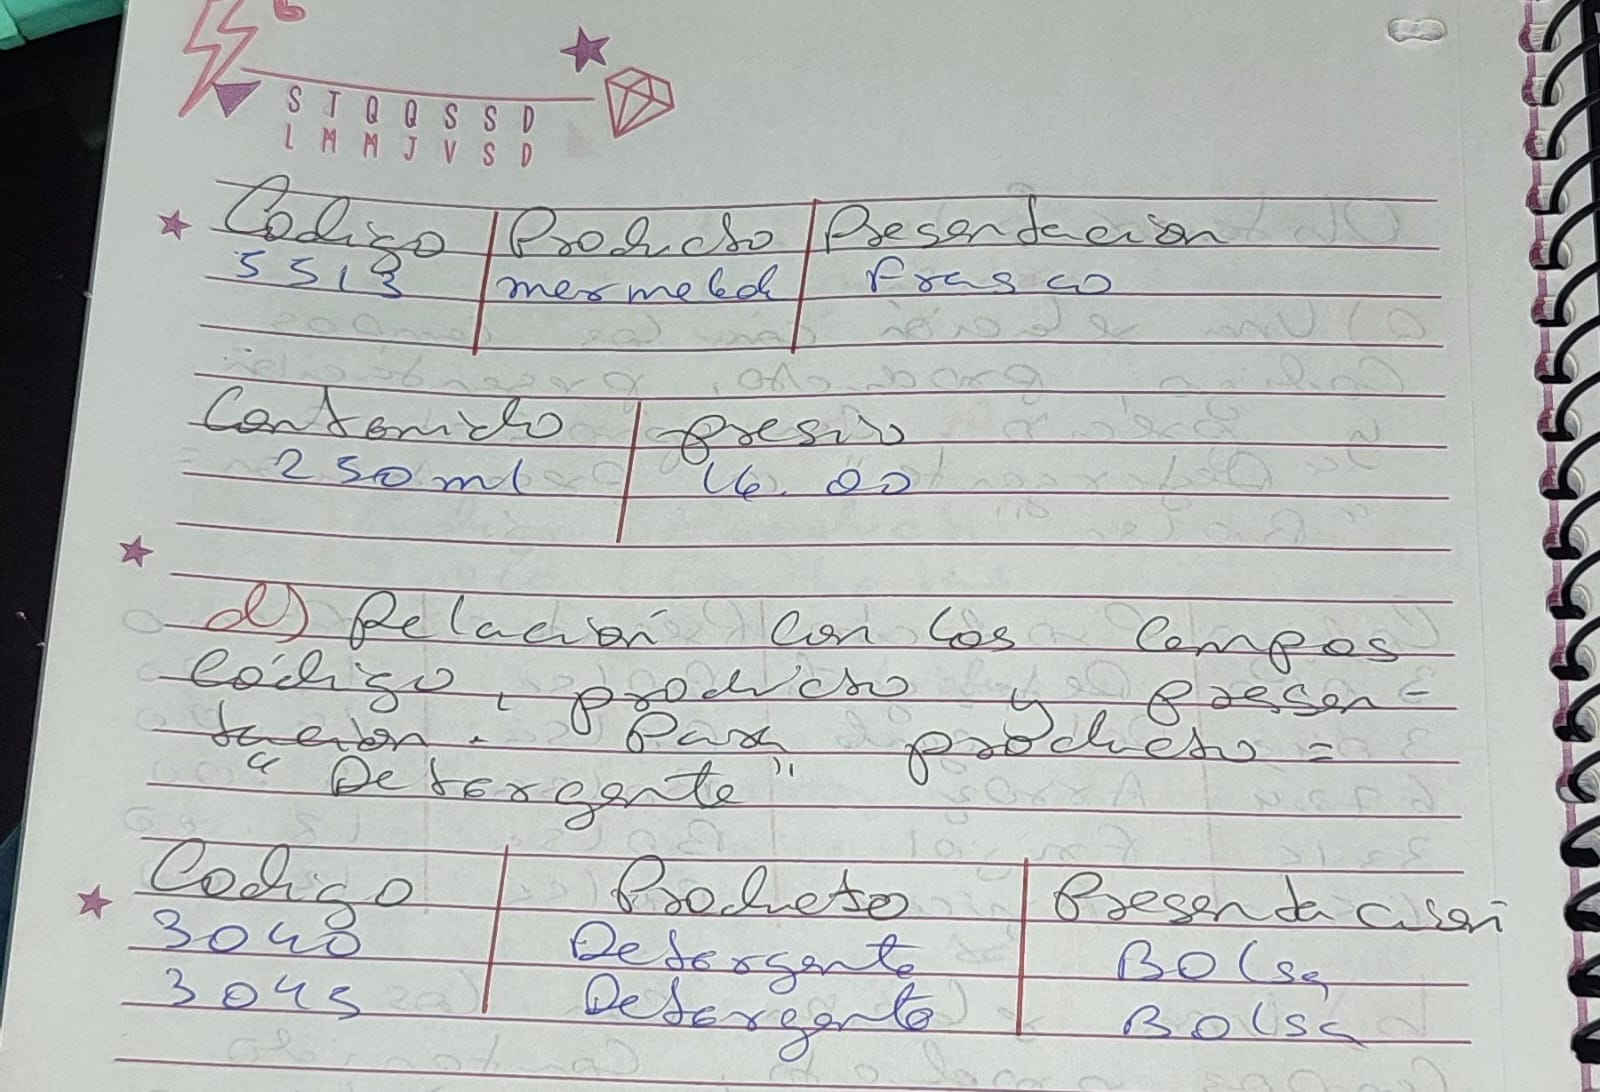 S T Q Q S S D
L M M J V S D
Codigo Producto Presentacion
5513 mermelad Frasco
Contenido presio
250 ml 16.00
d) Relación con los campos
código, producto y presen-
tacion. Para producto =
"Detergente"
Codigo Producto Presentacion
3040 Detergente Bolsa
3045 Detergente Bolsa